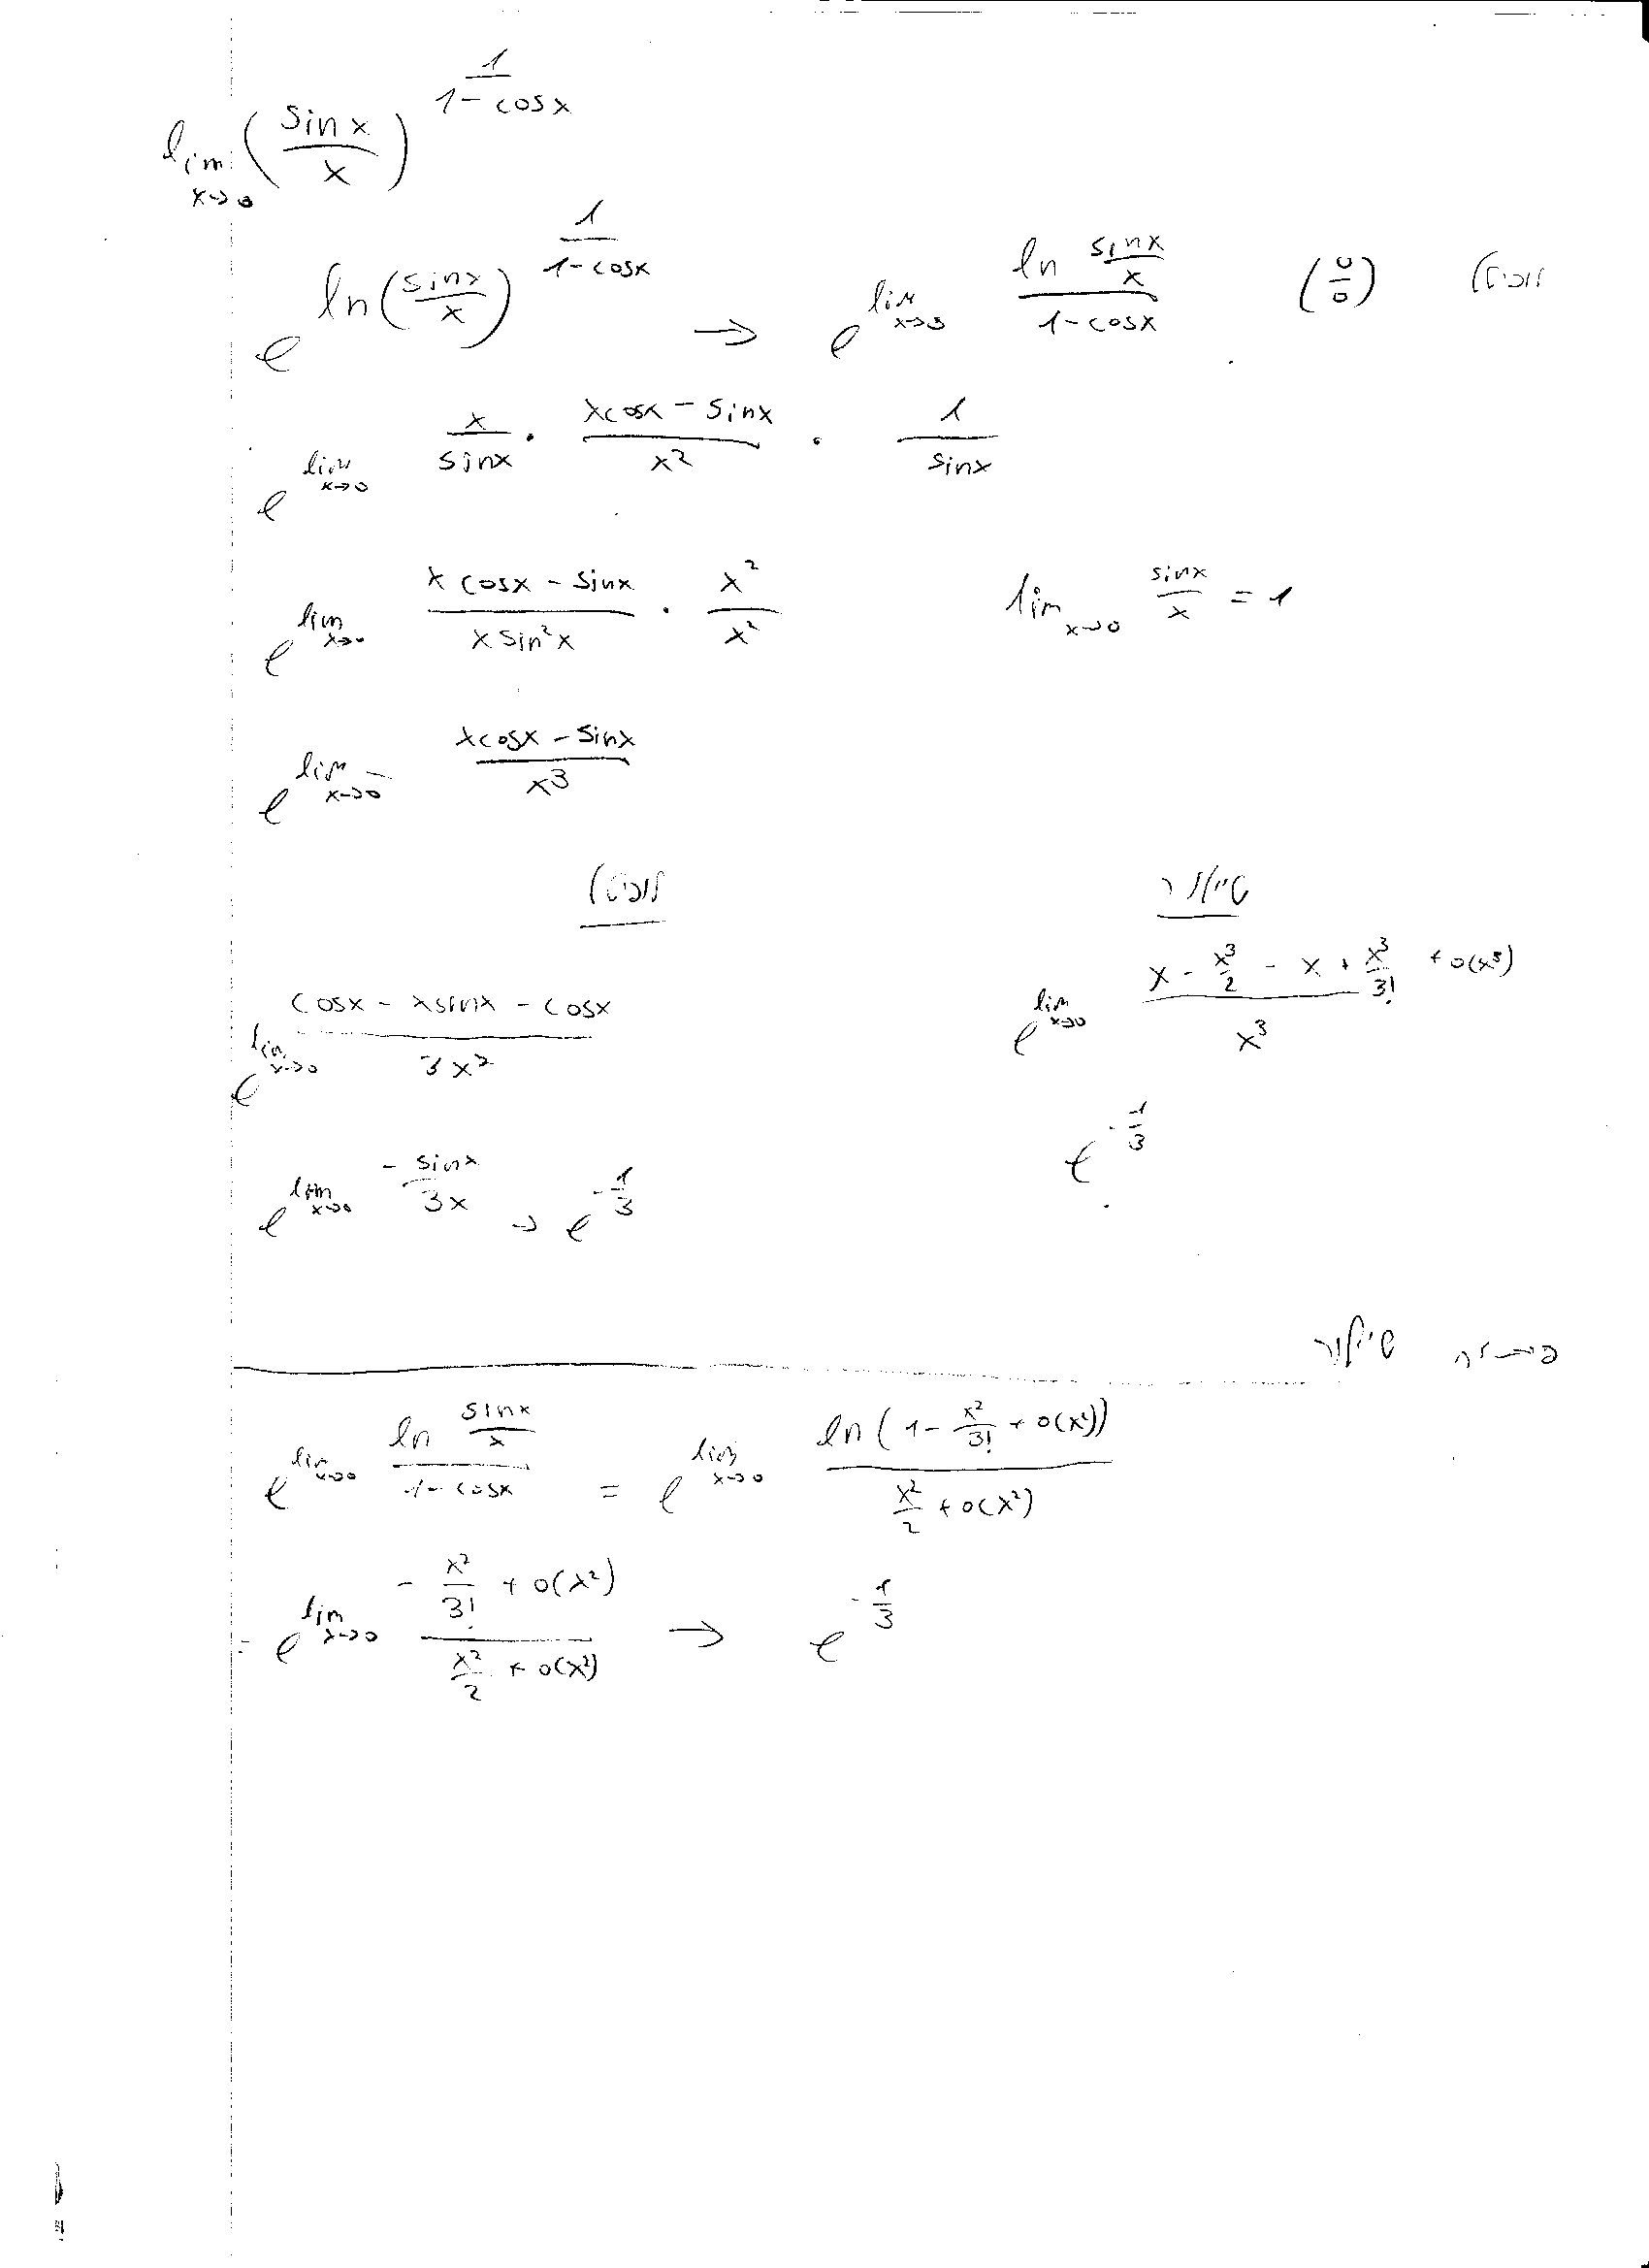 lim x→0 (sinx/x)^(1/(1-cosx))
e^(ln(sinx/x)^(1/(1-cosx))) → e^(lim x→0 (ln sinx/x)/(1-cosx)) (0/0)
e^(lim x→0 x/sinx · (xcosx - sinx)/x² · 1/sinx)
e^(lim x→0 (x cosx - sinx)/(x sin²x) · x²/x²) lim x→0 sinx/x = 1
e^(lim x→0 (xcosx - sinx)/x³)
טיילור
e^(lim x→0 (cosx - xsinx - cosx)/(3x²))
e^(lim x→0 (x - x³/2 - x + x³/3! + o(x³))/x³)
e^(lim x→0 -sinx/3x) → e^(-1/3)
e^(-1/3)
טיילור
e^(lim x→0 (ln sinx/x)/(1-cosx)) = e^(lim x→0 ln(1 - x²/3! + o(x²))/(x²/2 + o(x²)))
= e^(lim x→0 (-x²/3! + o(x²))/(x²/2 + o(x²))) → e^(-1/3)